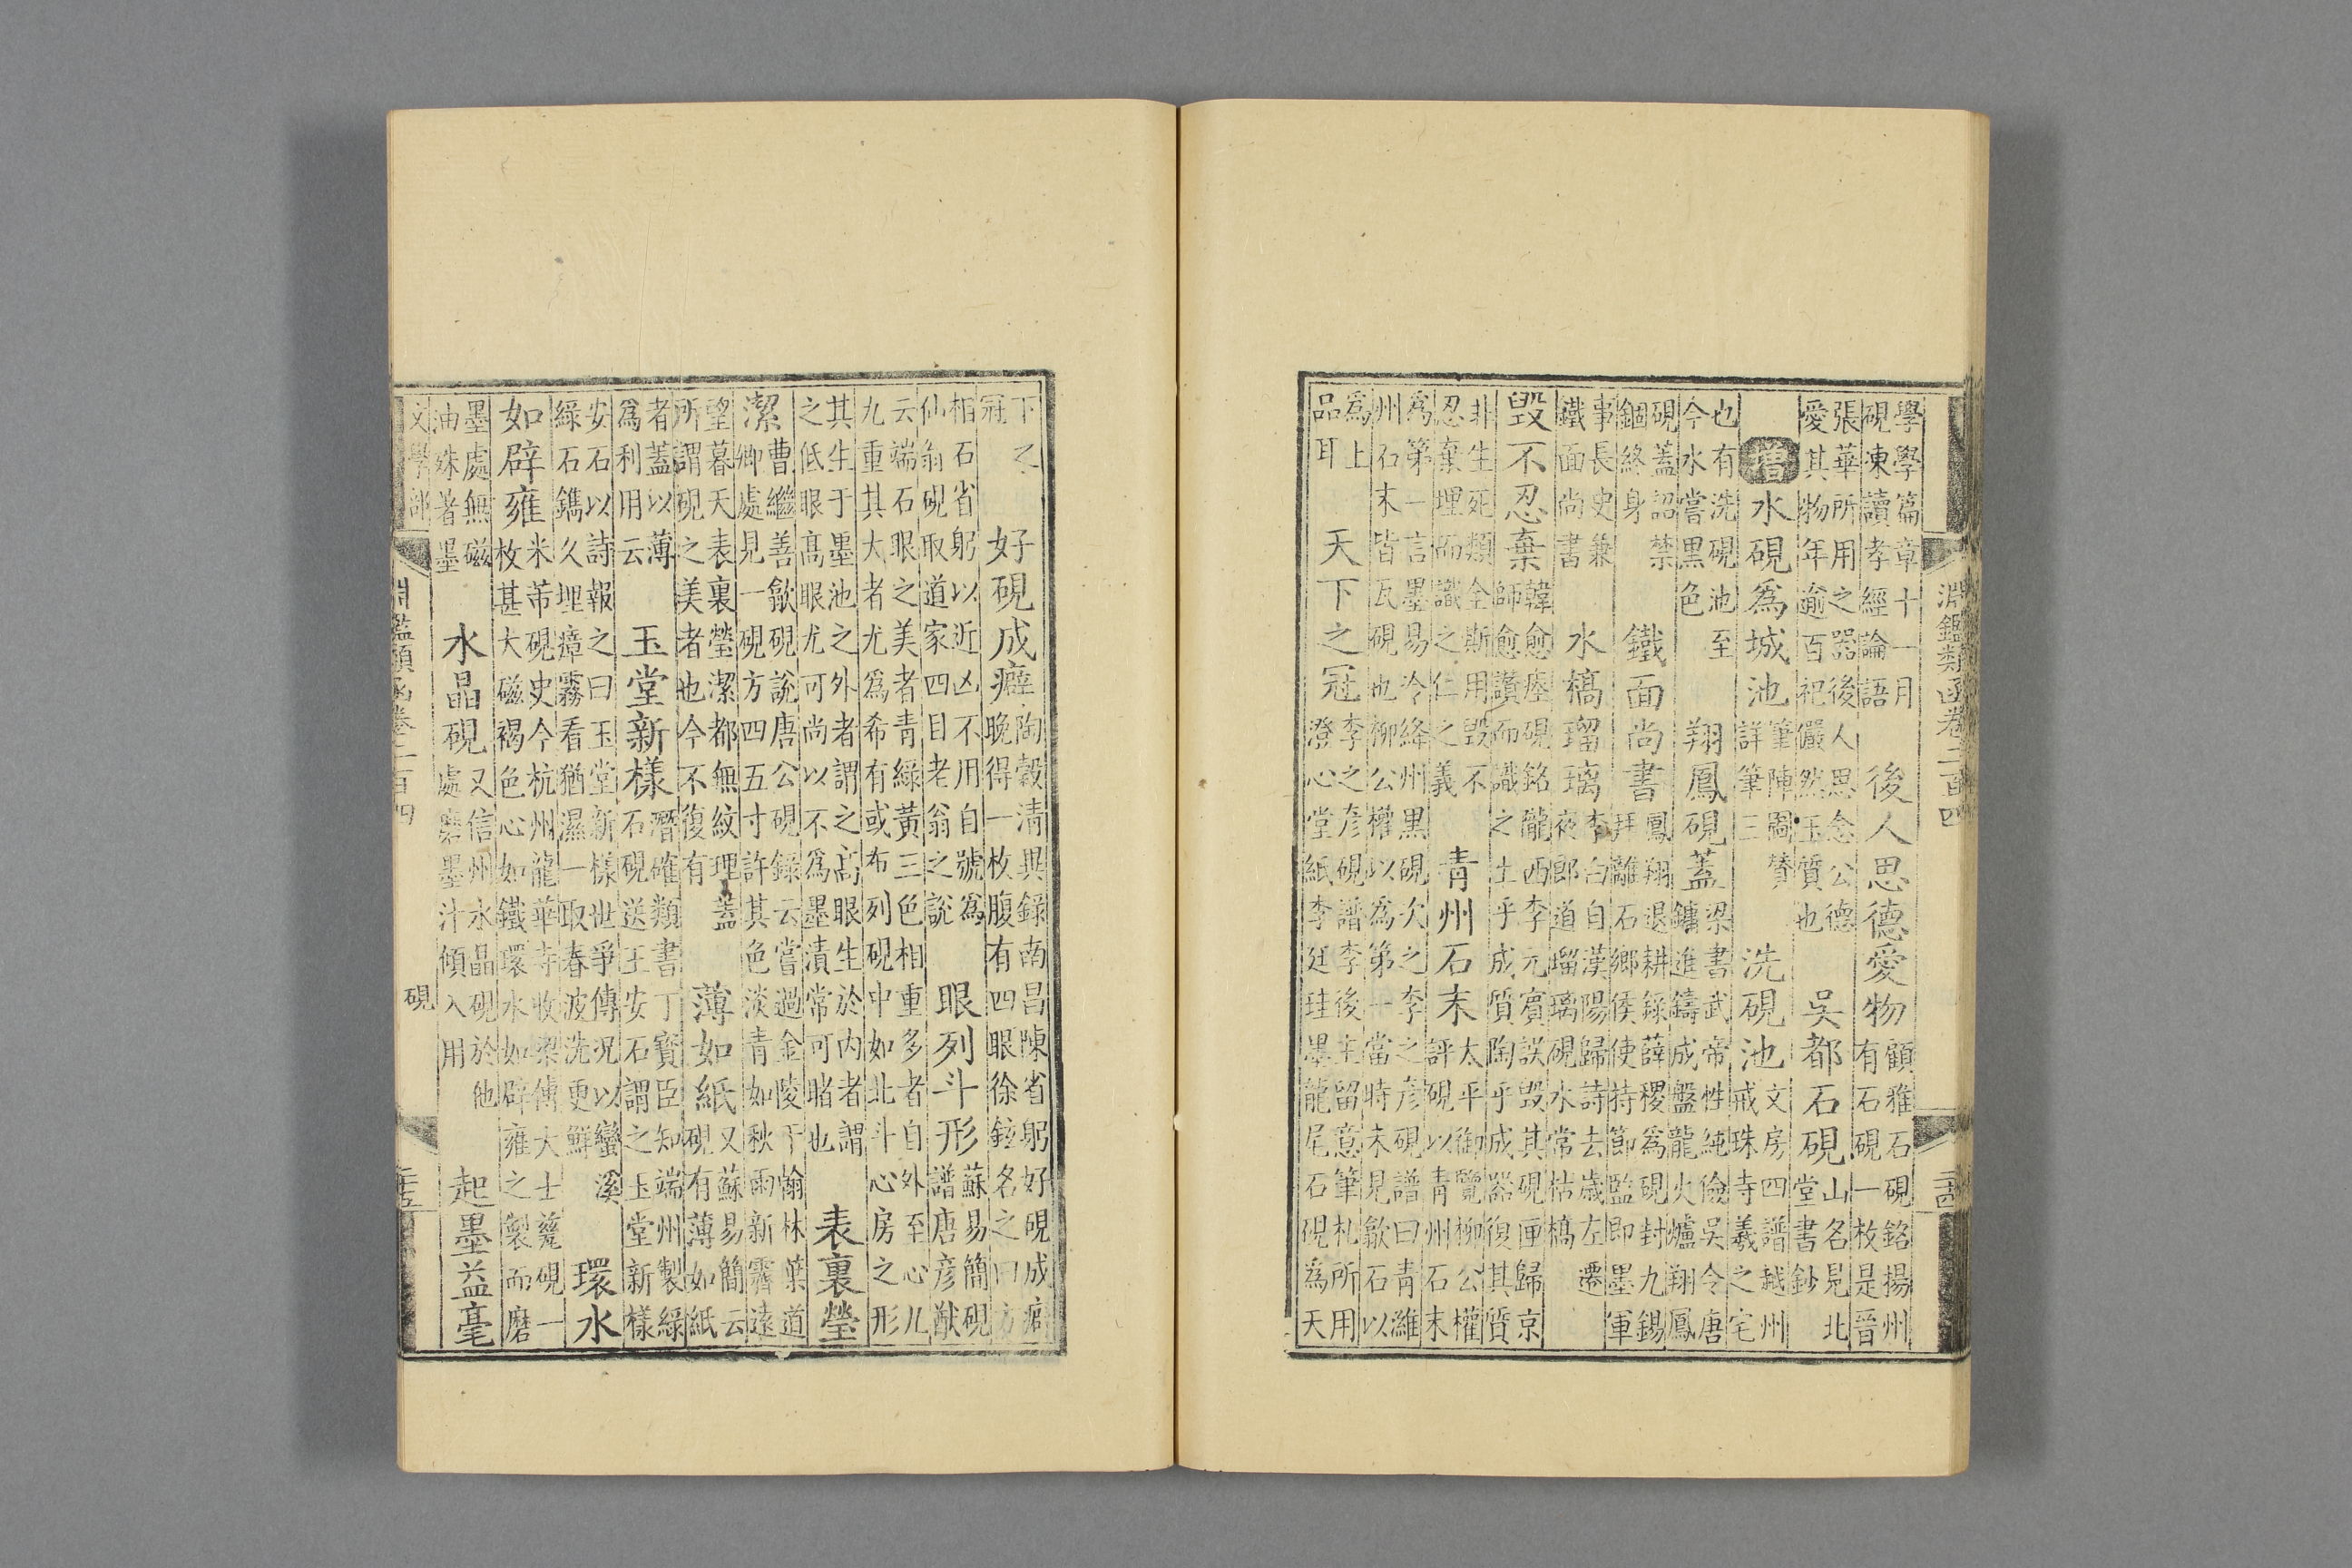 淵鑑類函卷二百四 二十四
學學篇章十一月
硯凍讀孝經論語
後人思德愛物
顧雅石硯銘揚州
有石硯一枚是晉
張華所用之器後人思念公德
愛其物年逾百祀儼然玉質也
吳都石硯
山名見北
堂書鈔
增 水硯為城池
筆陣圖賛
詳筆三
洗硯池
文房四譜越州
戒珠寺羲之宅
也有洗硯池至
今水嘗黑色
翔鳳硯蓋
梁書武帝性純儉吳令唐
鏞進鑄成盤龍火爐翔鳳
硯蓋詔禁
錮終身
鐵面尚書
鳳翔退耕錄薛稷為硯封九錫
拜離石鄉侯使持節監即墨軍
事長史兼
鐵面尚書
水槁瑠璃
李白自漢陽歸詩去歲左遷
夜郎道瑠璃硯水常枯槁
毀不忍棄
韓愈瘞硯銘隴西李元賓誤毀其硯匣歸京
師愈讚而識之土乎成質陶乎成器復其質
非生死類全斯用毀不
忍棄埋而識之仁之義
青州石末
太平御覽柳公權
評硯以青州石末
為第一言墨易冷絳州黑硯次之李之彥硯譜曰青濰
州石末皆瓦硯也柳公權以為第一當時未見歙石以
為上
品耳
天下之冠
李之彥硯譜李後主留意筆札所用
澄心堂紙李廷珪墨龍尾石硯為天
下之
冠
好硯成癖
陶穀清異錄南昌陳省躬好硯成癖
晚得一枚腹有四眼徐鉉名之曰方
相石省躬以近凶不用自號為
仙翁硯取道家四目老翁之說
眼列斗形
蘇易簡硯
譜唐彥猷
云端石眼之美者青綠黃三色相重多者自外至心凡
九重其大者尤為希有或布列硯中如北斗心房之形
其生于墨池之外者謂之高眼生於內者謂
之低眼高眼尤可尚以不為墨漬常可睹也
表裏瑩
潔
曹繼善歙硯說唐公硯錄云嘗過金陵于翰林葉道
卿處見一硯方四五寸許其色淡青如秋雨新霽遠
望暮天表裏瑩潔都無紋理蓋
所謂硯之美者也今不復有
薄如紙
又蘇易簡云
硯有薄如紙
者蓋以薄
為利用云
玉堂新樣
潛確類書丁寶臣知端州製綠
石硯送王安石謂之玉堂新樣
安石以詩報之曰玉堂新樣世爭傳況以蠻溪
綠石鐫久埋瘴霧看猶濕一取春波洗更鮮
環水
如辟雍
米芾硯史今杭州龍華寺收梁傅大士甆硯一
枚甚大磁褐色心如鐵環水如辟雍之製而磨
墨處無磁
油殊著墨
水晶硯
又信州水晶硯於他
處磨墨汁傾入用
起墨益毫
文學部 淵鑑類函卷二百四 硯 二十五